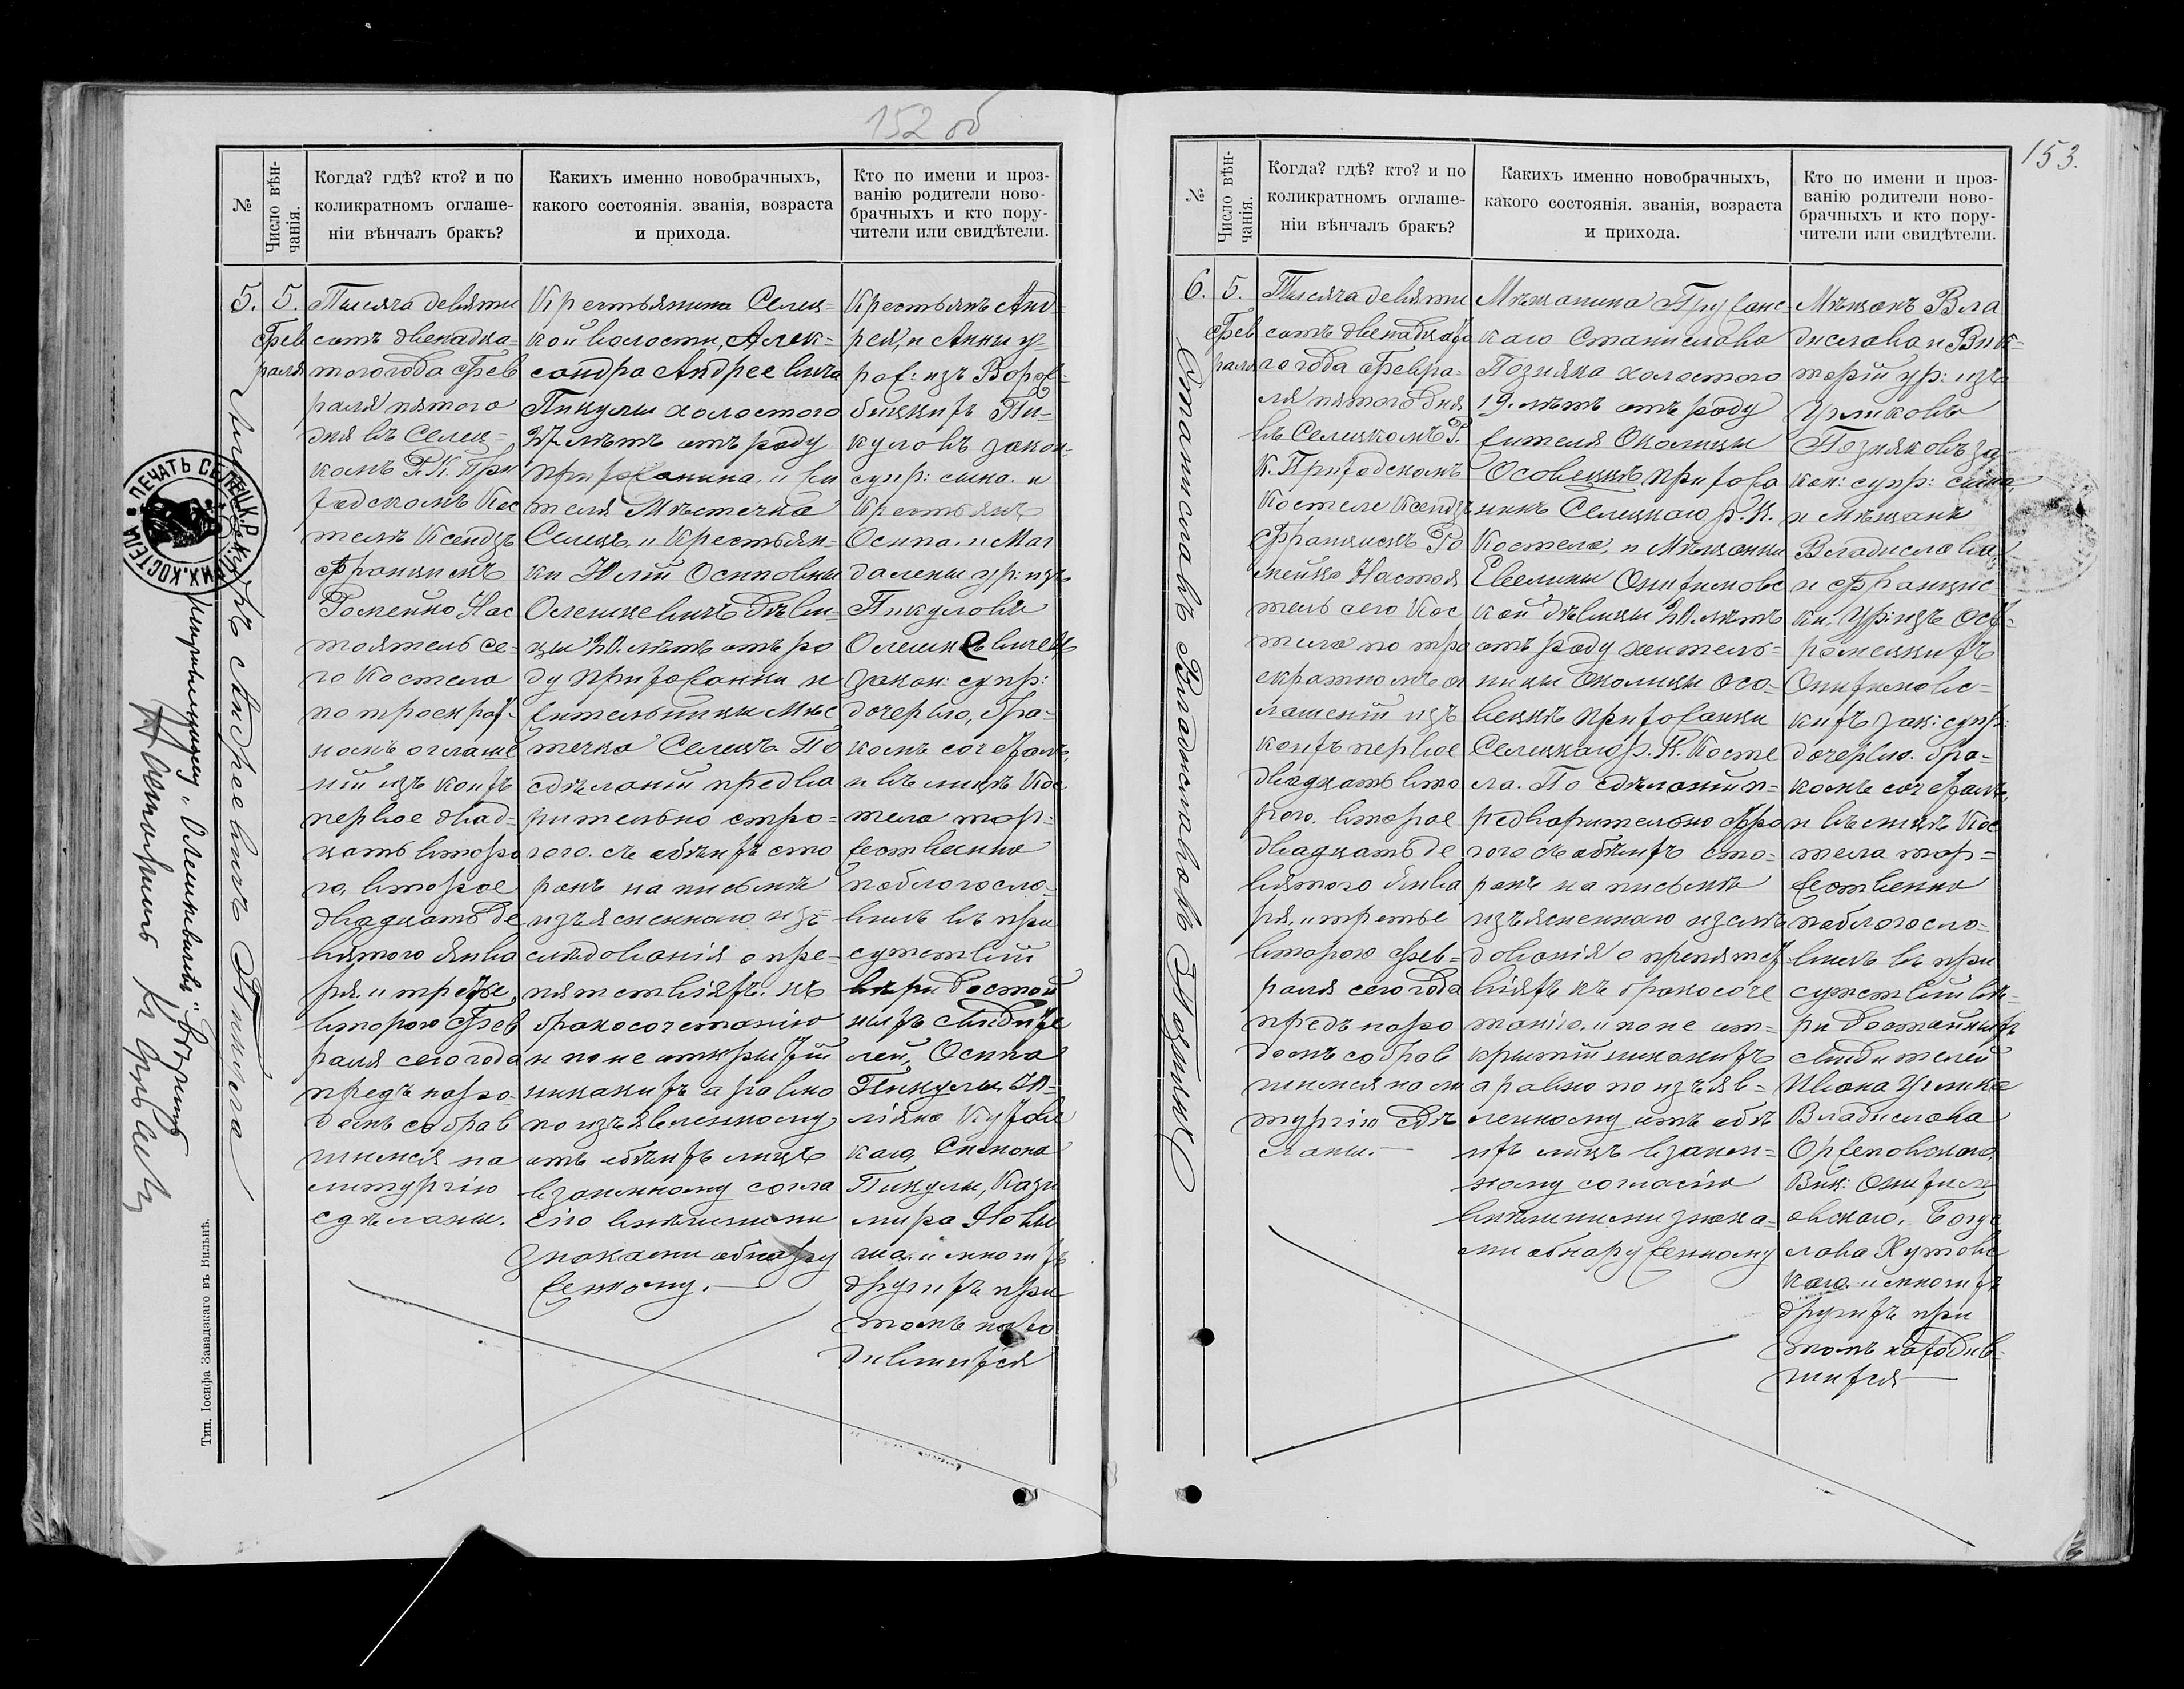 152 об
№
Число вѣн-
чанія.
Когда? гдѣ? кто? и по
коликратномъ оглаше-
ніи вѣнчалъ бракъ?
Какихъ именно новобрачныхъ,
какого состоянія. званія, возраста
и прихода.
Кто по имени и проз-
ванію родители ново-
брачныхъ и кто пору-
чители или свидѣтели.
5.
5.
Фев
раля
Тысяча девять
сотъ двенадца-
того года Фев
раля пятого
дня въ Селец-
комъ Р. К. При
ходскомъ Кос
телѣ Ксендзъ
Францискъ
Ромейко Нас
тоятель се-
го Костела
по троекрат-
номъ оглаше
ніи изъ коихъ
первое двад-
цать второ
го, второе
двадцать де
вятого Янва
ря, и третье,
второго Фев
раля сего года
предъ наро-
домъ собрав
шимся на
литургію
сдѣланы.
Крестьянина Селец-
кой волости, Алек-
сандра Андреевича
Пикулы холостого
27 лѣтъ отъ роду
прихожанина и жи
теля Мѣстечка
Селецъ и Крестьян-
ки Юліи Осиповны
Олешкевичъ дѣви-
цы 20. лѣтъ отъ ро
ду прихожанки и
жительницы Мѣс
течка Селецъ. По
сдѣланіи предва
рительно стро-
гого съ обѣихъ сто
ронъ на письмѣ
изъясненного изъ
слѣдованія о пре-
пятствіяхъ къ
бракосочетанію
и по не открытіи
никакихъ а равно
по изъявленному
отъ обѣихъ лицъ
взаимному согла
сію внѣшними
знаками обнару
женному.
Крестьянъ Анд-
рея, и Анны у-
рож: изъ Вороб-
бицкихъ Пи-
куловъ закон-
супр: сына и
Крестьянъ
Осипа и Маг
далены ур: изъ
Пикуловъ
Олешкевичей
закон: супр:
дочерью, бра-
комъ сочеталъ,
и въ лицѣ Кос
тела тор-
жественно
поблагосло-
вилъ въ при
сутствіи
вѣри достой
ныхъ свидѣте
лей, Осипа
Пикулы,
каго, Симона
Пикулы, Кази
мира
и многихъ
другихъ при
томъ нахо
дившихся
Александръ Андреевичъ Пикула
ПЕЧАТЬ СЕЛЕЦК. Р. К. ПРИХ. КОСТЕЛА
Тип. Іосифа Завадзкаго въ Вильнѣ.
153.
№
Число вѣн-
чанія.
Когда? гдѣ? кто? и по
коликратномъ оглаше-
ніи вѣнчалъ бракъ?
Какихъ именно новобрачныхъ,
какого состоянія. званія, возраста
и прихода.
Кто по имени и проз-
ванію родители ново-
брачныхъ и кто пору-
чители или свидѣтели.
6.
5.
Фев
раля
Тысяча девять
сотъ двенадцато
го года Февра-
ля пятого дня
въ Селецкомъ Р.
К. Приходскомъ
Костеле Ксендзъ
Францискъ Ро
мейко Настоя
тель сего Кос
тела по тро
екратномъ ог
лашеніи изъ
коихъ первое
двадцать вто
рого. второе
двадцать де
вятого Янва
ря. и третье
второго Фев-
раля сего года
предъ наро
домъ собрав
шимся на ли
тургію сдѣ
ланы.
Мѣщанина Пружанс-
каго Станислава
Позняка холостого
19. лѣтъ отъ роду
жителя Околицы
Осовецкъ прихожа
нинъ Селецкаго р. К.
Костела, и Мѣщанки
Евелины Онихимовс
кой дѣвицы 20. лѣтъ
отъ роду житель-
ницы Околицы Осо-
вецкъ прихожанки
Селецкаго р. К. Косте
ла. По сдѣланіи п-
редварительно стро
гого съ обѣихъ сто-
ронъ на письмѣ
изъясненнаго изслѣ
дованія о препятст
віяхъ къ бракосоче
танію, и по не от-
крытіи никакихъ
а равно по изъяв-
ленному отъ обѣ
ихъ лицъ взаим-
ному согласію
внѣшними знака-
ми обнаруженному
Мѣщанъ Вла
дислава и Вик-
торіи ур: изъ
Урликовъ
Позняковъ за
кон: супр: сына,
и Мѣщанъ
Владислава
и Францис
ки ур: изъ
Онихимовс-
кихъ зак: супр:
дочерью. бра-
комъ сочеталъ,
и въ лицѣ Кос
тела тор-
жественно
поблагосло-
вилъ въ при
сутствіи вѣ-
ри достойныхъ
свидѣтелей
Ивана
Владислава
Оржеховского,
Вик: Онихим
овского,
и многихъ
другихъ при
томъ находив-
шихся
Станиславъ Владиславовъ Познякъ